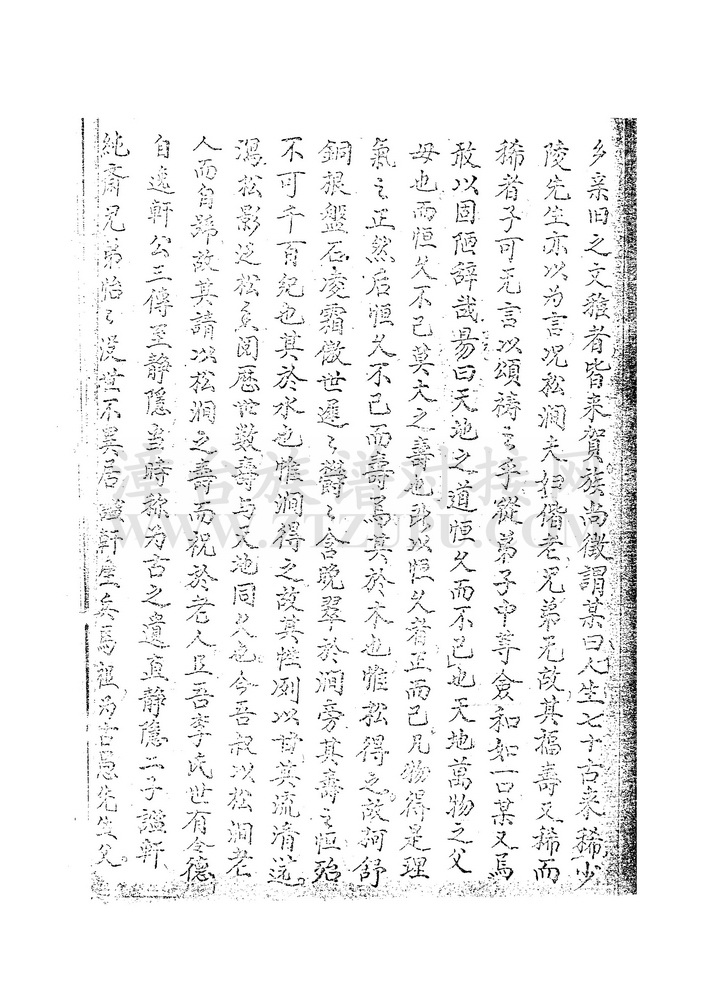 乡亲旧之文雅者皆来贺族尚徵謂某曰人生七十古来稀少
陵先生亦以为言况松澗夫妇偕老兄弟无故其福壽又稀而
稀者子可无言以頌祷之乎從弟子中等僉和如一口某又焉
敢以固陋辞哉易曰天地之道恒久而不已也天地萬物之父
母也而恒久不已莫大之壽也所以恒久者正而已凡物得是理
氣之正然后恒久不已而壽焉其於木也惟松得之故柯舒
銅根盤石凌霜傲世遲々欝々含晚翠於澗旁其壽之恒殆
不可千百紀也其於水也惟澗得之故其性冽以甘其流清远
濕松影泛松 閲歷世数壽与天地同久也今吾叔以松澗老
人而自號故其請以松澗之壽而祝於老人且吾李氏世有令德
自逸軒公三傳至静隱当時称为古之遺直静隱二子謐軒
純齋兄弟怡々没世不異居謐軒 焉祖为古愚先生父
漳台族谱对接网
WWW.ZTZUPU.COM